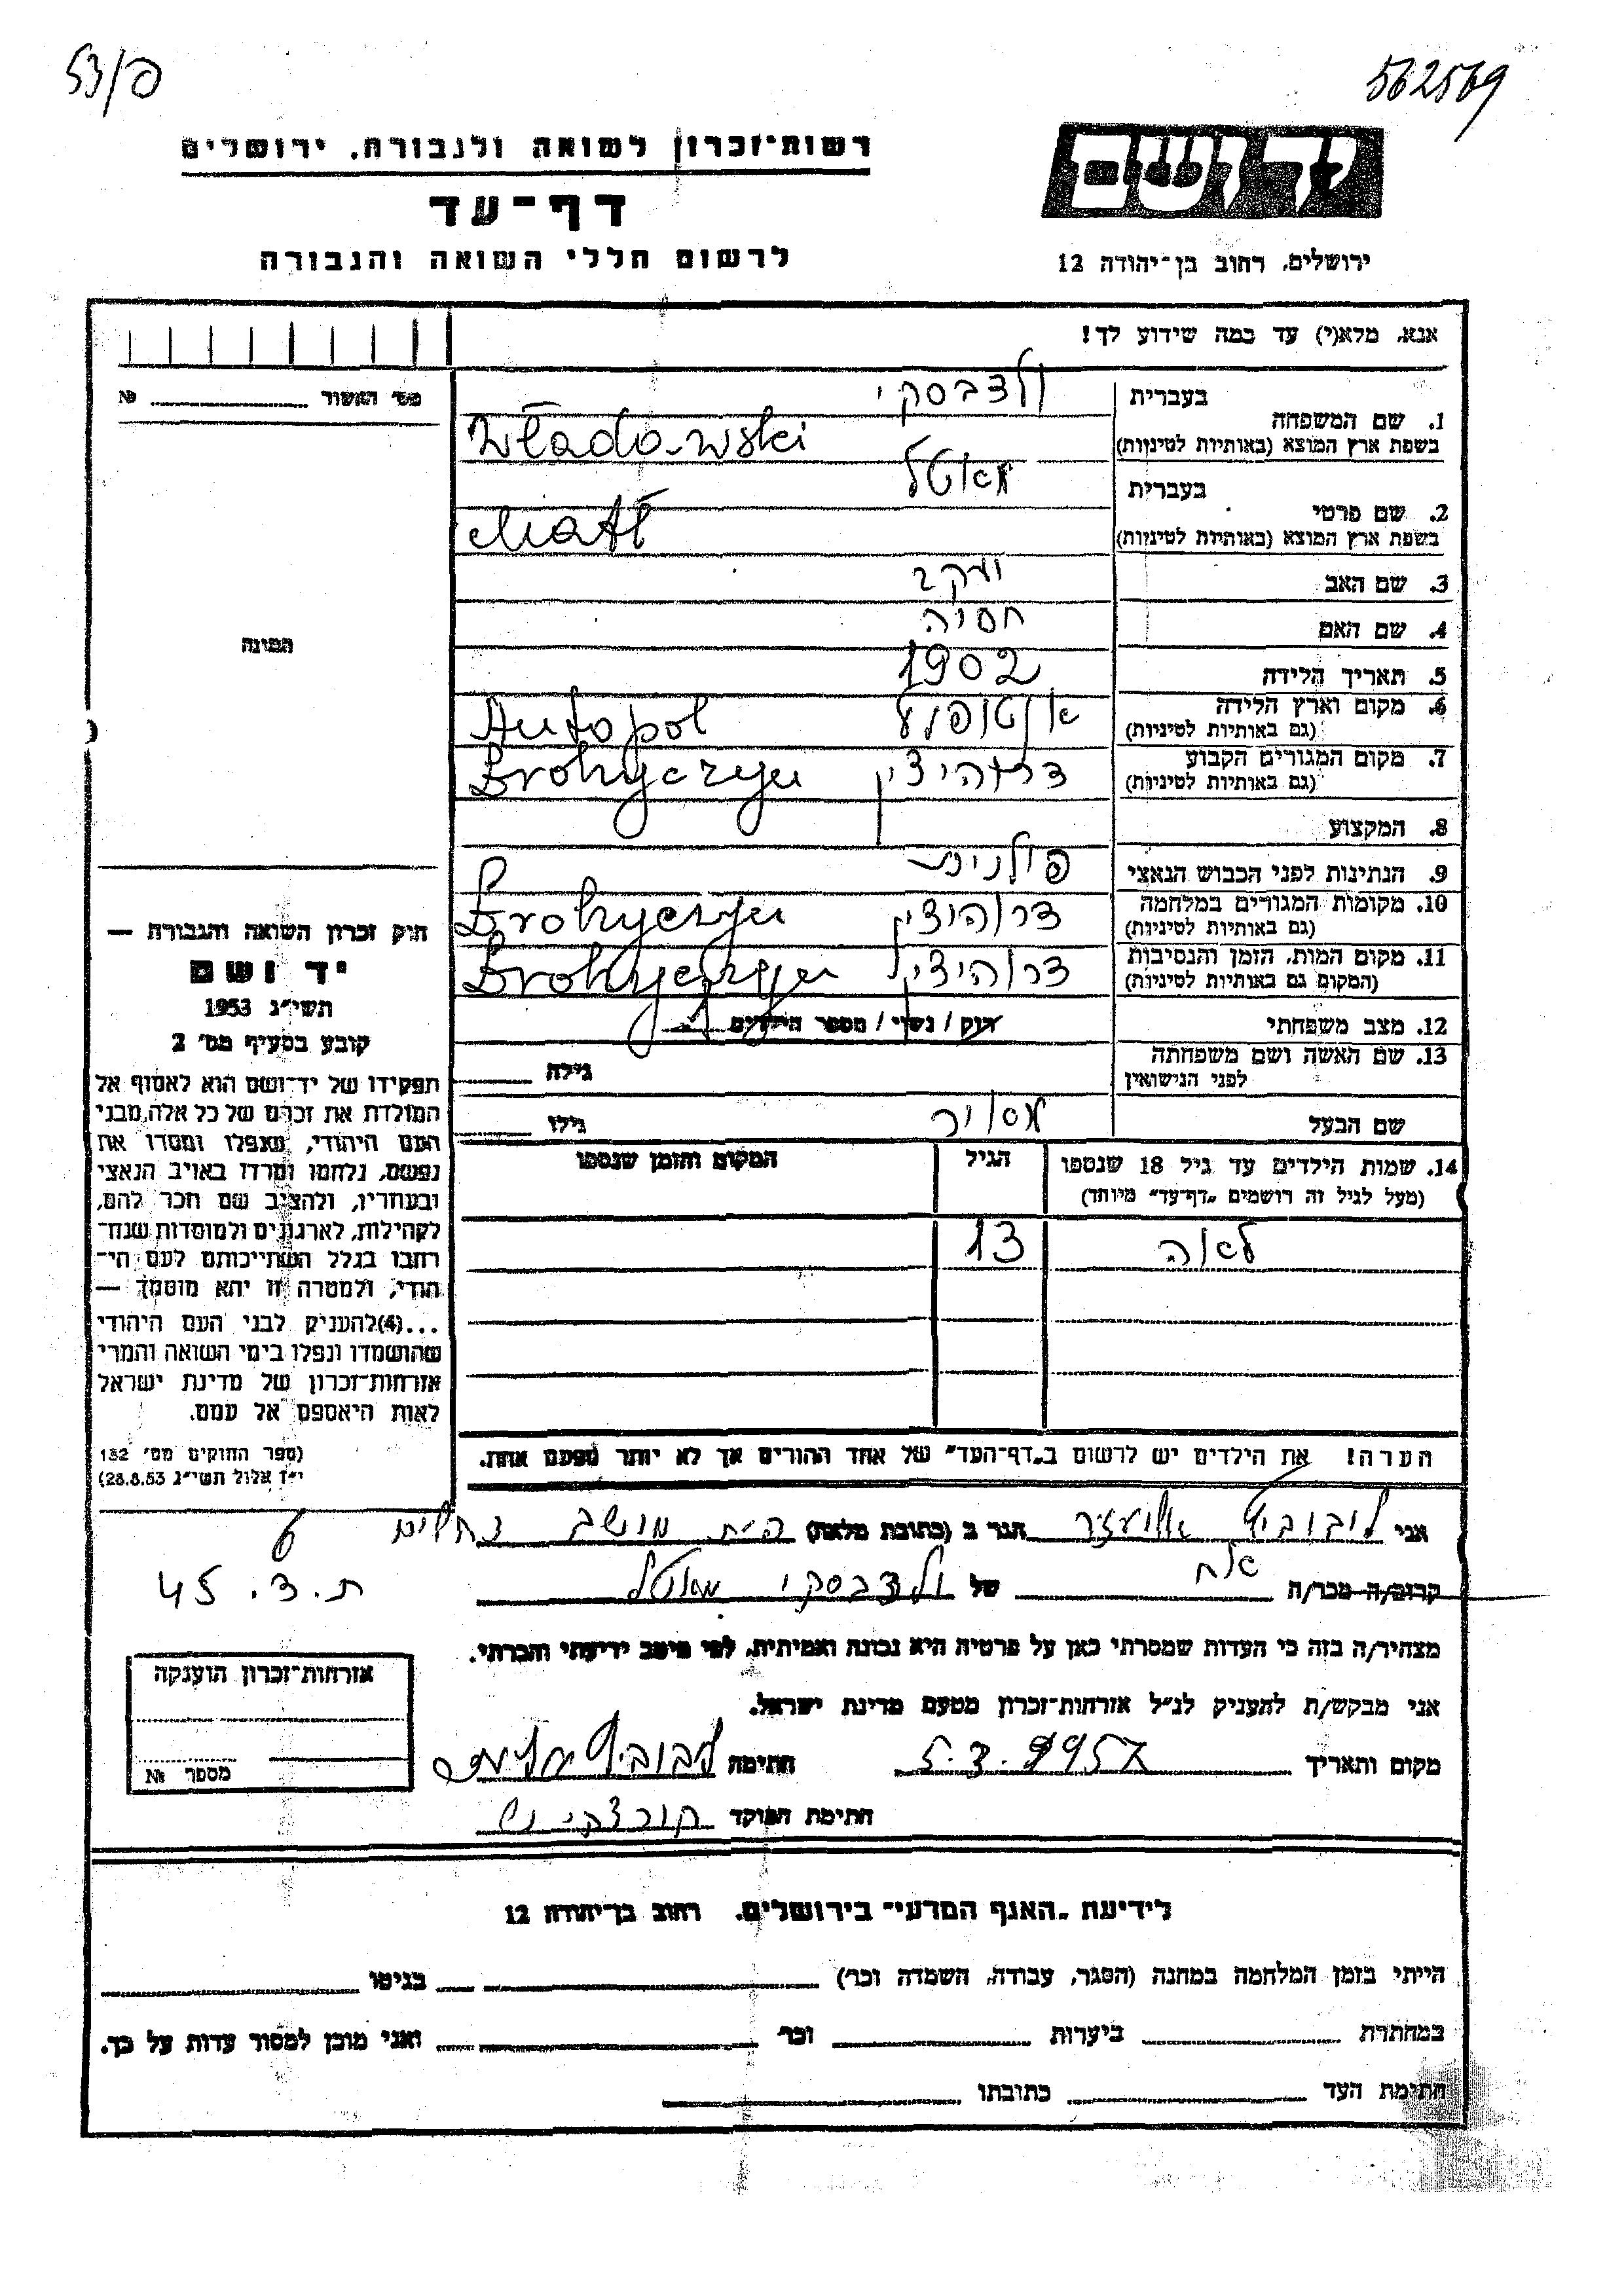 53/פ
562569
רשות־זכרון לשואה ולגבורה, ירושלים
ידושם
דף־עד
לרשום חללי השואה והגבורה
ירושלים, רחוב בן־יהודה 12
אנא, מלא(י) עד כמה שידוע לך!
מס׳ האשור № 
1. שם המשפחה
בעברית
ולדבסקי
בשפת ארץ המוצא (באותיות לטיניות)
Władowski
2. שם פרטי
בעברית
מאטל
בשפת ארץ המוצא (באותיות לטיניות)
Matł
3. שם האב
יעקב
4. שם האם
חסיה
5. תאריך הלידה
1902
6. מקום וארץ הלידה
(גם באותיות לטיניות)
אנטופול Antopol
7. מקום המגורים הקבוע
(גם באותיות לטיניות)
דרוהיצין Drohyczyn
8. המקצוע
9. הנתינות לפני הכבוש הנאצי
פולנית
10. מקומות המגורים במלחמה
(גם באותיות לטיניות)
דרוהיצין Drohyczyn
11. מקום המות, הזמן והנסיבות
(המקום גם באותיות לטיניות)
דרוהיצין Drohyczyn
12. מצב משפחתי
רוק / נשוי / מספר הילדים 1
13. שם האשה ושם משפחתה
לפני הנישואין
גילה
שם הבעל
מאיר
גילו
14. שמות הילדים עד גיל 18 שנספו
(מעל לגיל זה רושמים „דף־עד” מיוחד)
הגיל
המקום והזמן שנספו
לאה 13
הערה! את הילדים יש לרשום ב„דף־העד” של אחד ההורים אך לא יותר מפעם אחת.
התמונה
חוק זכרון השואה והגבורה —
יד ושם
תשי״ג 1953
קובע בסעיף מס׳ 2
תפקידו של יד־ושם הוא לאסוף אל
המולדת את זכרם של כל אלה, מבני
העם היהודי, שנפלו ומסרו את
נפשם, נלחמו ומרדו באויב הנאצי
ובעוזריו, ולהציב שם וזכר להם,
לקהילות, לארגונים ולמוסדות שנח־
רבו בגלל השתייכותם לעם הי־
הודי, ולמטרה זו יהא מוסמך —
...(4) להעניק לבני העם היהודי
שהושמדו ונפלו בימי השואה והמרי
אזרחות־זכרון של מדינת ישראל
לאות היאספם אל עמם.
(ספר החוקים מס׳ 132
י״ז אלול תשי״ג 28.8.53)
אני ליבוביץ אליעזר הגר ב (כתובת מלאה) פ״ת מושב נחלים
ת.ד. 45
קרוב/ה מכר/ה אח של ולדבסקי מאטל
מצהיר/ה בזה כי העדות שמסרתי כאן על פרטיה היא נכונה ואמיתית, לפי מיטב ידיעתי והכרתי.
אני מבקש/ת להעניק לנ״ל אזרחות־זכרון מטעם מדינת ישראל.
מקום ותאריך 5.3.1957 חתימה ליבוביץ
חתימת הפוקד
אזרחות־זכרון הוענקה
מספר №
לידיעת „האגף המדעי” בירושלים, רחוב בן־יהודה 12
הייתי בזמן המלחמה במחנה (הסגר, עבודה, השמדה וכו׳) בגיטו
במחתרת ביערות וכו׳ ואני מוכן למסור עדות על כך.
חתימת העד כתובתו